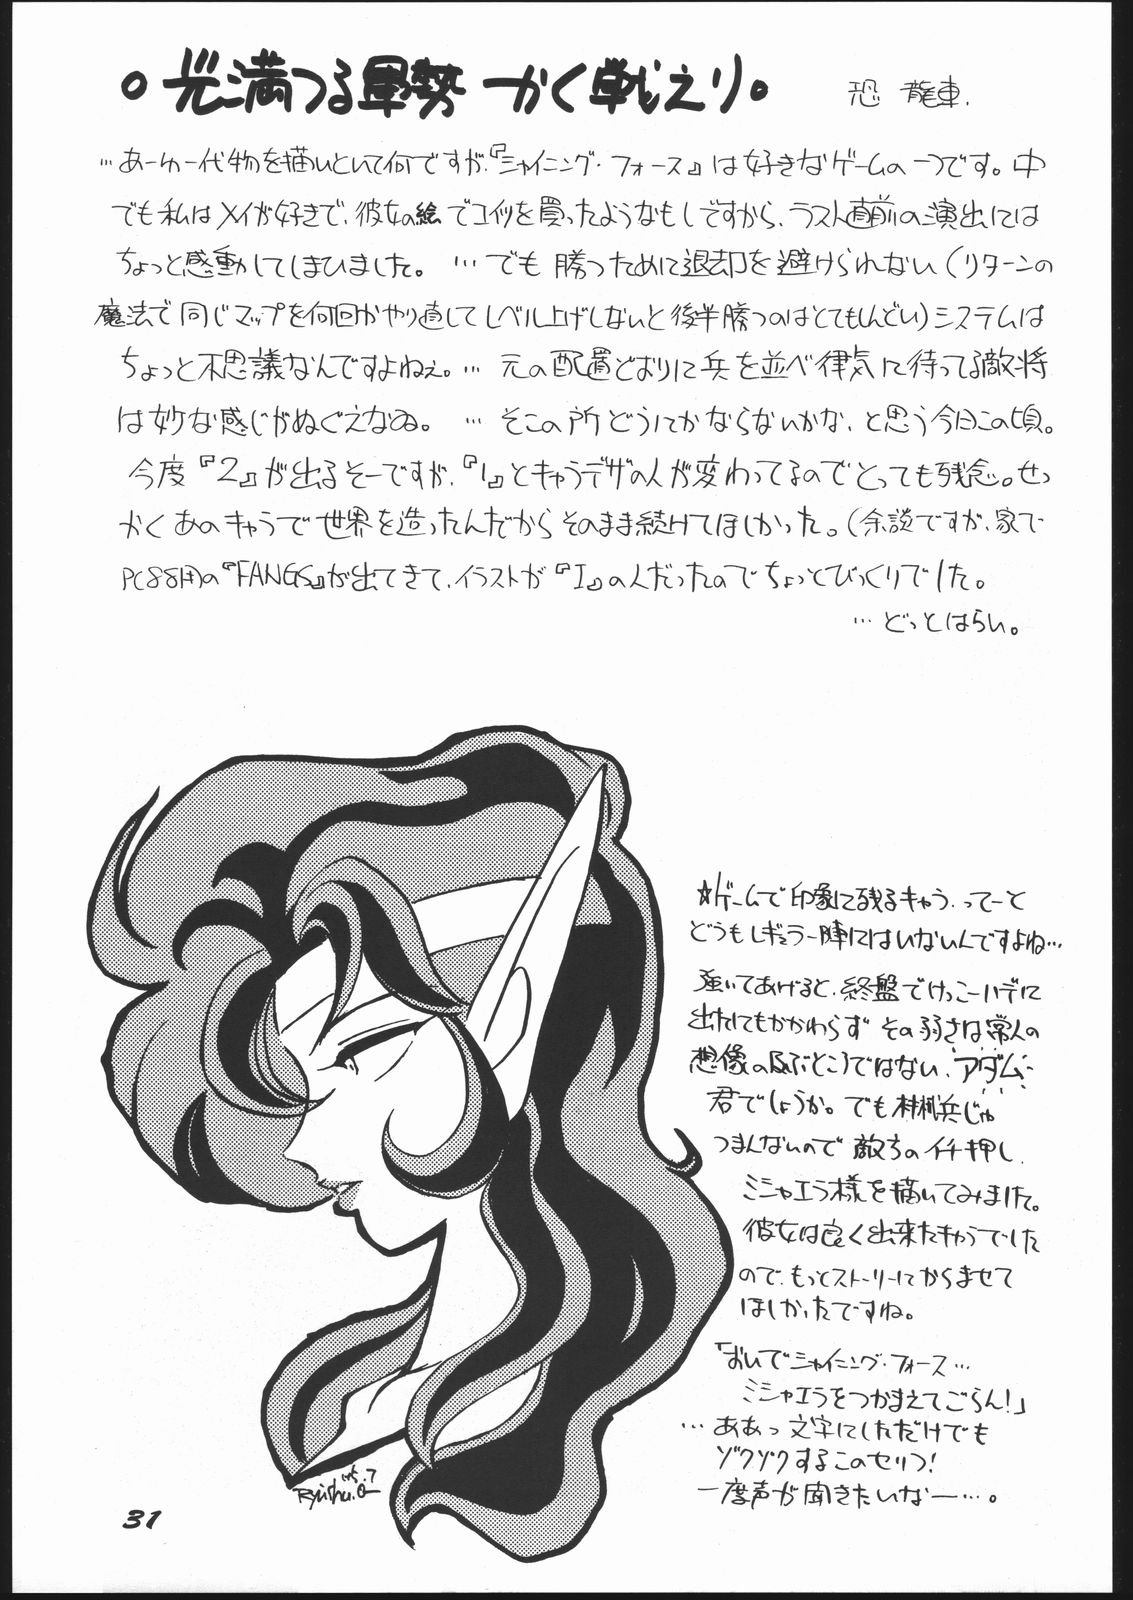 。光満つる軍勢 かく戦えり。
恐 龍車.
…あーゆー代物を描いといて何ですが、『シャイニング・フォース』は好きなゲームの一つです。中
でも私はメイが好きで、彼女の絵でコイツを買ったようなもしですから、ラスト直前の演出には
ちょっと感動してしまひました。 …でも 勝つために退却を避けられない(リターンの
魔法で同じマップを何回かやり直してレベル上げしないと後半勝つのはとてもしんどい)システムは
ちょっと不思議なんですよねぇ。… 元の配置どおりに兵を並べ律気に待ってる敵将
は妙な感じがぬぐえなゐ。 … そこの所どうにかならないかな、と思う今日この頃。
今度『2』が出るそーですが、『1』とキャラデザの人が変わってるのでとっても残念。せっ
かくあのキャラで世界を造ったんだからそのまま続けてほしかった。(余談ですが、家で
PC88用の『FANGS』が出てきて、イラストが『I』の人だったのでちょっとびっくりでした。
…どっとはらい。
☆ゲームで印象に残るキャラ、ってーと
どうもレギュラー陣にはいないんですよね…
強いてあげると、終盤でけっこーハデに
出たにもかかわらず その弱さは常人の
想像の及ぶところではない、アダム
君でしょうか。でも 村桃兵じゃ
つまんないので 敵方のイチ押し、
ミシャエラ様を描いてみました。
彼女は良く出来たキャラでした
ので、もっとストーリーにからませて
ほしかったですね。
「おいでシャイニング・フォース…
ミシャエラをつかまえてごらん!」
…ああっ 文字にしただけでも
ゾクゾクするこのセリフ!
一度声が聞きたいなー…。
Ryusha.
31